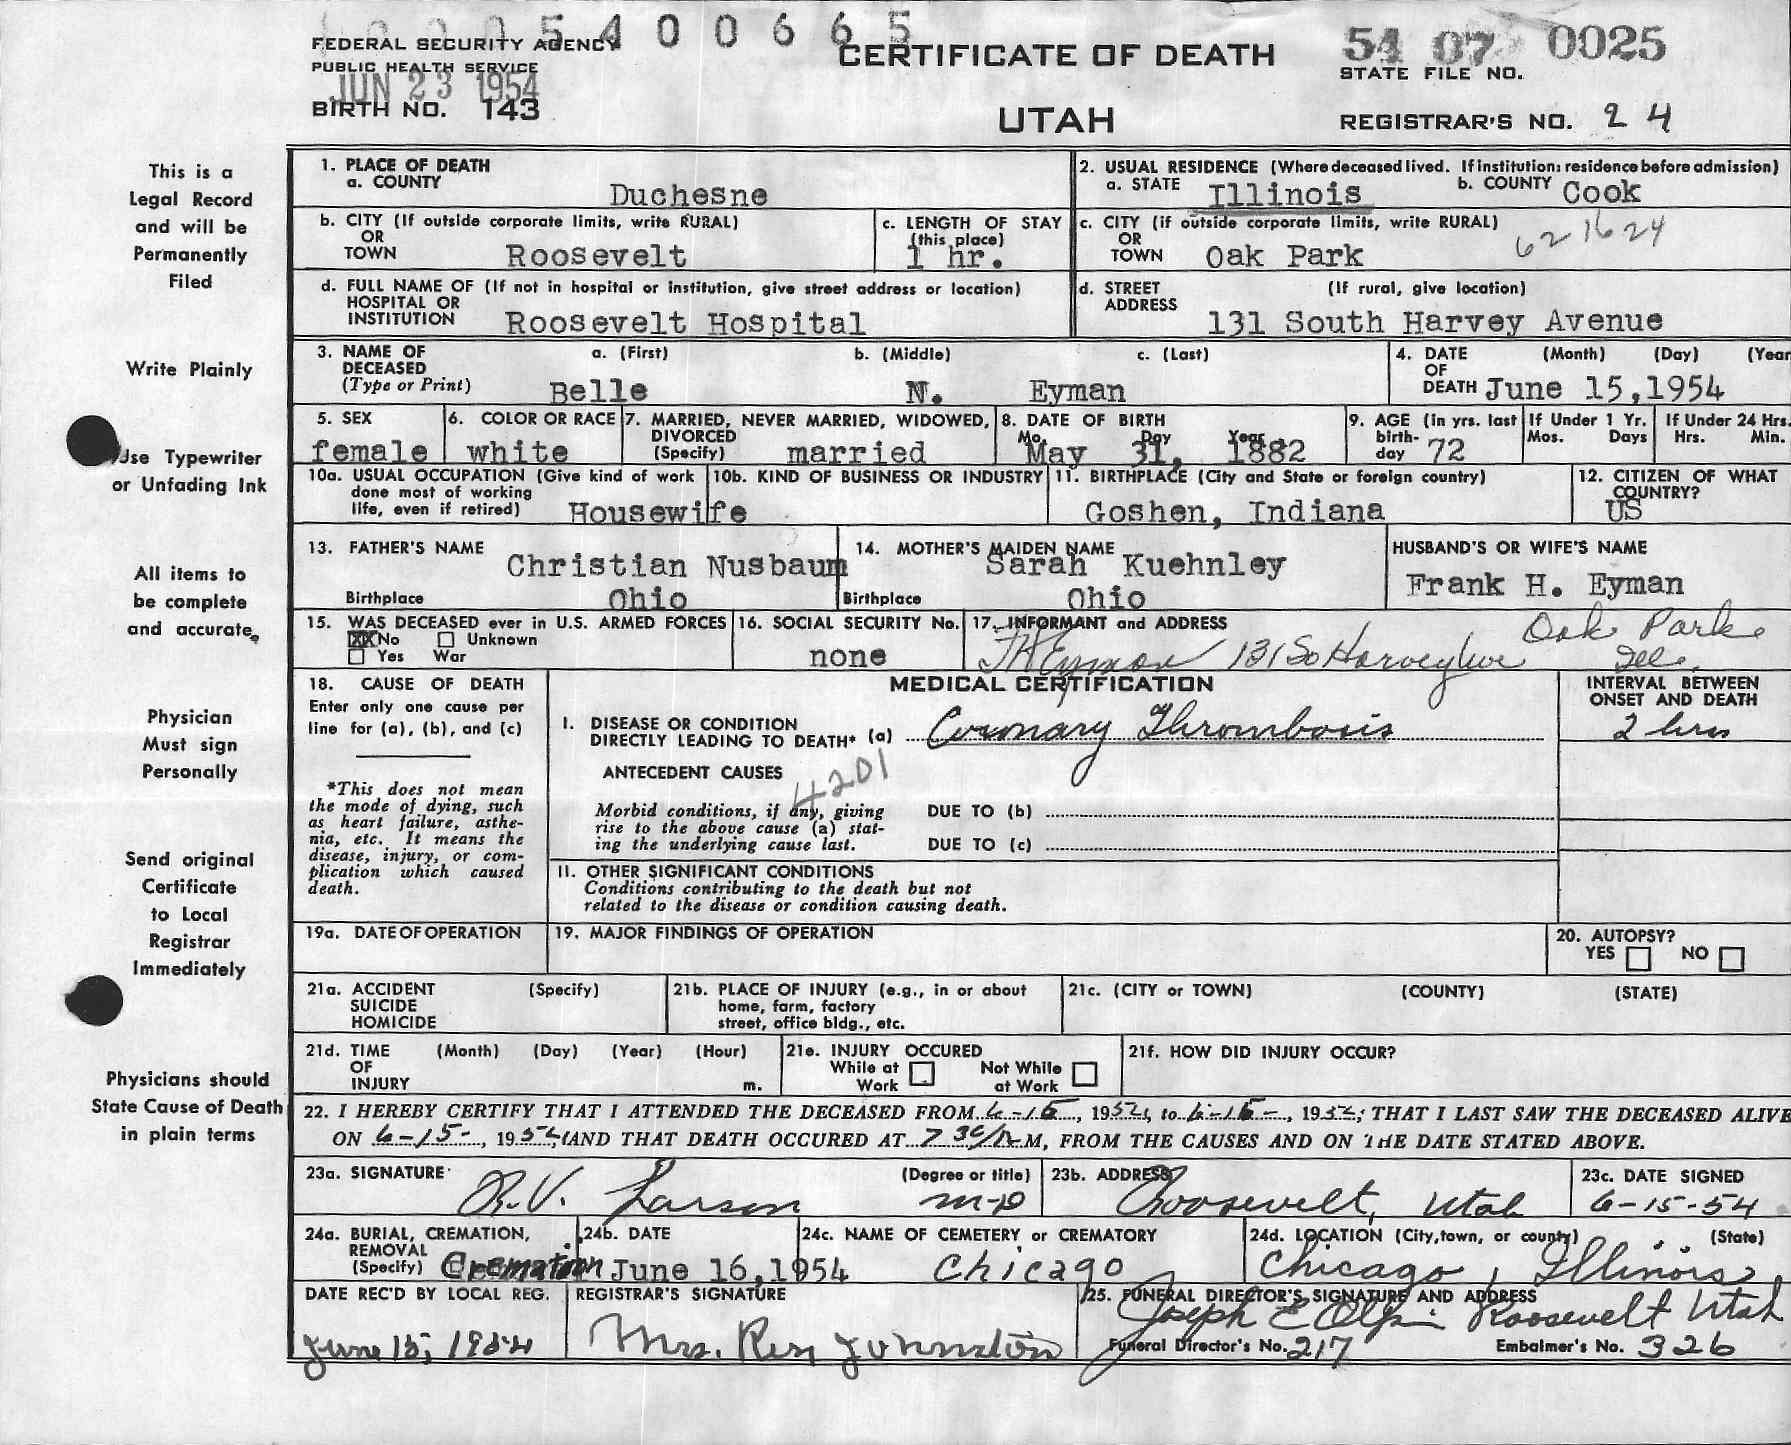 1000540 0 6 6 5
FEDERAL SECURITY AGENCY
PUBLIC HEALTH SERVICE
JUN 23 1954
BIRTH NO. 143
CERTIFICATE OF DEATH
UTAH
54 07 0025
STATE FILE NO.
REGISTRAR'S NO. 24
This is a
Legal Record
and will be
Permanently
Filed
Write Plainly
Use Typewriter
or Unfading Ink
All items to
be complete
and accurate.
Physician
Must sign
Personally
Send original
Certificate
to Local
Registrar
Immediately
Physicians should
State Cause of Death
in plain terms
1. PLACE OF DEATH
a. COUNTY Duchesne
2. USUAL RESIDENCE (Where deceased lived. If institution: residence before admission)
a. STATE Illinois b. COUNTY Cook
b. CITY (If outside corporate limits, write RURAL)
OR
TOWN Roosevelt
c. LENGTH OF STAY
(this place)
1 hr.
c. CITY (if outside corporate limits, write RURAL)
OR
TOWN Oak Park
621624
d. FULL NAME OF (If not in hospital or institution, give street address or location)
HOSPITAL OR
INSTITUTION Roosevelt Hospital
d. STREET (If rural, give location)
ADDRESS 131 South Harvey Avenue
3. NAME OF a. (First) b. (Middle) c. (Last)
DECEASED
(Type or Print) Belle N. Eyman
4. DATE (Month) (Day) (Year
OF
DEATH June 15,1954
5. SEX
female
6. COLOR OR RACE
white
7. MARRIED, NEVER MARRIED, WIDOWED,
DIVORCED
(Specify) married
8. DATE OF BIRTH
Mo. Day Year
May 31, 1882
9. AGE (in yrs. last
birth-
day 72
If Under 1 Yr.
Mos. Days
If Under 24 Hrs.
Hrs. Min.
10a. USUAL OCCUPATION (Give kind of work
done most of working
life, even if retired) Housewife
10b. KIND OF BUSINESS OR INDUSTRY
11. BIRTHPLACE (City and State or foreign country)
Goshen, Indiana
12. CITIZEN OF WHAT
COUNTRY?
US
13. FATHER'S NAME
Christian Nusbaum
Birthplace Ohio
14. MOTHER'S MAIDEN NAME
Sarah Kuehnley
Birthplace Ohio
HUSBAND'S OR WIFE'S NAME
Frank H. Eyman
15. WAS DECEASED ever in U.S. ARMED FORCES
XX No Unknown
Yes War
16. SOCIAL SECURITY No.
none
17. INFORMANT and ADDRESS
F H Eyman 131 So Harvey Ave Oak Park
Ill.
18. CAUSE OF DEATH
Enter only one cause per
line for (a), (b), and (c)
*This does not mean
the mode of dying, such
as heart failure, asthe-
nia, etc. It means the
disease, injury, or com-
plication which caused
death.
MEDICAL CERTIFICATION
INTERVAL BETWEEN
ONSET AND DEATH
I. DISEASE OR CONDITION
DIRECTLY LEADING TO DEATH* (a) Coronary Thrombosis
2 hrs
ANTECEDENT CAUSES
4201
Morbid conditions, if any, giving
rise to the above cause (a) stat-
ing the underlying cause last.
DUE TO (b)
DUE TO (c)
II. OTHER SIGNIFICANT CONDITIONS
Conditions contributing to the death but not
related to the disease or condition causing death.
19a. DATE OF OPERATION
19. MAJOR FINDINGS OF OPERATION
20. AUTOPSY?
YES NO
21a. ACCIDENT (Specify)
SUICIDE
HOMICIDE
21b. PLACE OF INJURY (e.g., in or about
home, farm, factory
street, office bldg., etc.
21c. (CITY or TOWN) (COUNTY) (STATE)
21d. TIME (Month) (Day) (Year) (Hour)
OF
INJURY m.
21e. INJURY OCCURED
While at Work
Not While at Work
21f. HOW DID INJURY OCCUR?
22. I HEREBY CERTIFY THAT I ATTENDED THE DECEASED FROM 6-15, 1954, to 6-15-, 1954; THAT I LAST SAW THE DECEASED ALIVE
ON 6-15-, 1954, AND THAT DEATH OCCURED AT 7 30 M, FROM THE CAUSES AND ON THE DATE STATED ABOVE.
23a. SIGNATURE (Degree or title)
R.V. Larson M-D
23b. ADDRESS
Roosevelt, Utah
23c. DATE SIGNED
6-15-54
24a. BURIAL, CREMATION,
REMOVAL
(Specify) Cremation
24b. DATE
June 16,1954
24c. NAME OF CEMETERY or CREMATORY
Chicago
24d. LOCATION (City, town, or county) (State)
Chicago, Illinois
DATE REC'D BY LOCAL REG.
June 15, 1954
REGISTRAR'S SIGNATURE
Mrs. Rex Johnston
25. FUNERAL DIRECTOR'S SIGNATURE AND ADDRESS
Joseph E Olpin Roosevelt Utah
Funeral Director's No. 217 Embalmer's No. 326